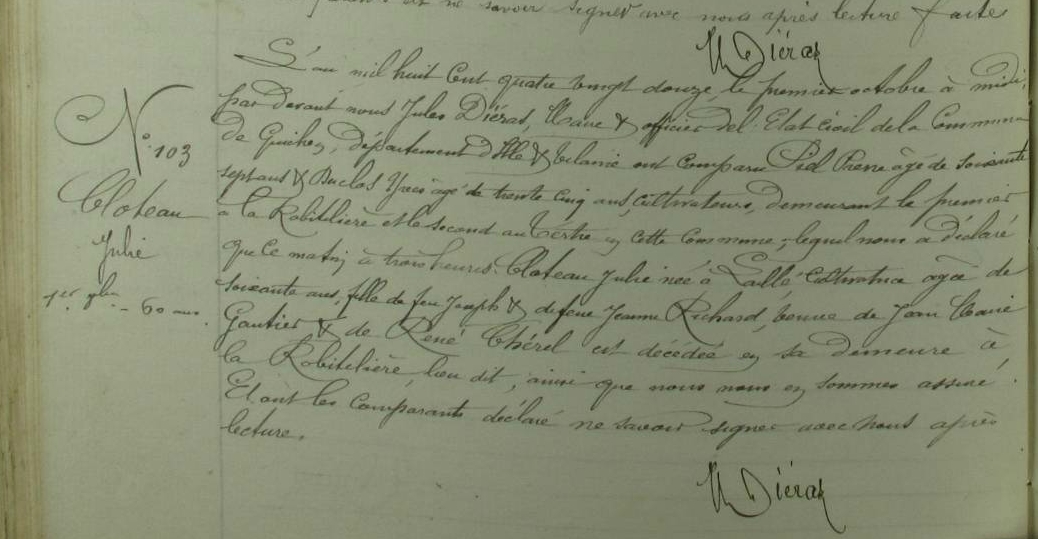 ne savoir signer avec nous après lecture faite
Diéras
N° 103
Cloteau
Julie
1er 8bre _ 60 ans.
L'an mil huit Cent quatre vingt douze, le premier octobre à midi,
par devant nous Jules Diéras, Maire & officier de l'Etat Civil de la Commune
de Guichen, département d'Ille & Vilaine ont comparu Piel Pierre âgé de soixante
sept ans & Duclos Yves âgé de trente cinq ans, cultivateurs, demeurant le premier
à la Robitelière et le second au Tertre en cette commune, lequel nous a déclaré
que ce matin, à trois heures, Cloteau Julie née à Laillé, Cultivatrice âgée de
soixante ans, fille de feu Joseph & de feue Jeanne Richard, veuve de Jean Marie
Gautier & de René Chérel est décédée en sa demeure à
la Robitelière, lieu dit, ainsi que nous nous en sommes assuré.
Et ont les Comparants déclaré ne savoir signer avec nous après
lecture.
Diéras